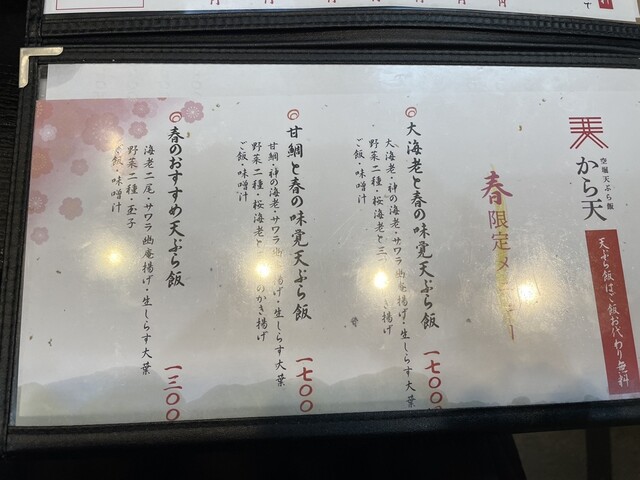 空堀天ぷら飯
から天
天ぷら飯はご飯お代わり無料
春限定
大海老と春の味覚天ぷら飯
大海老・神の海老・サワラ幽庵揚げ・生しらす大葉
野菜二種・桜海老と三つ
ご飯・味噌汁
一七〇〇
甘鯛と春の味覚天ぷら飯
甘鯛・神の海老・サワラ幽庵揚げ・生しらす大葉
野菜二種・桜海老と のかき揚げ
ご飯・味噌汁
一七〇〇
春のおすすめ天ぷら飯
海老二尾・サワラ幽庵揚げ・生しらす大葉
野菜二種・玉子
ご飯・味噌汁
一三〇〇